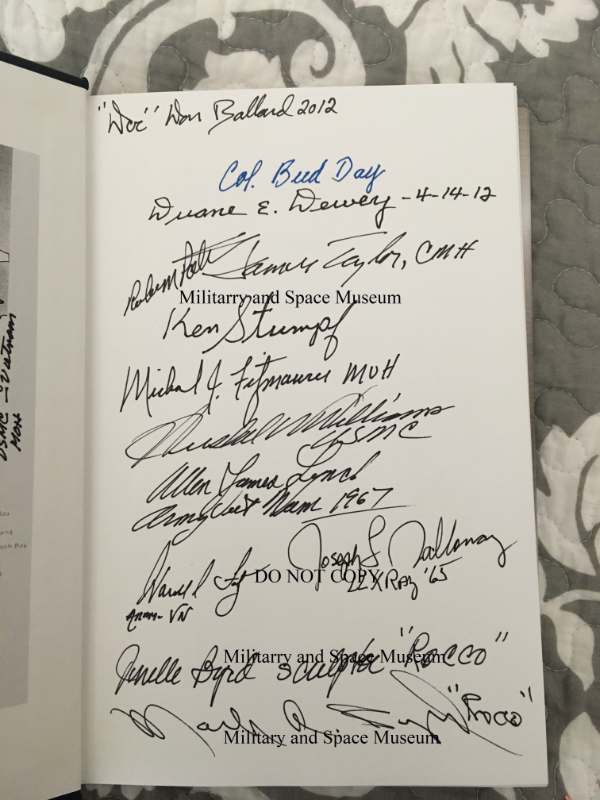 USMC - Vietnam
MOH
"Doc" Don Ballard 2012
Col. Bud Day
Duane E. Dewey - 4-14-12
James Taylor, CMH
Militarry and Space Museum
Ken Stumpf
Michael J. Fitzmaurice MOH
Williams
USMC
Allen James Lynch
Army Viet Nam 1967
Joseph L. Galloway
DO NOT COPY
LZ XRay '65
Army - VN
Janelle Byrd sculptor "ROCCO"
Militarry and Space Museum
"ROCCO"
Military and Space Museum